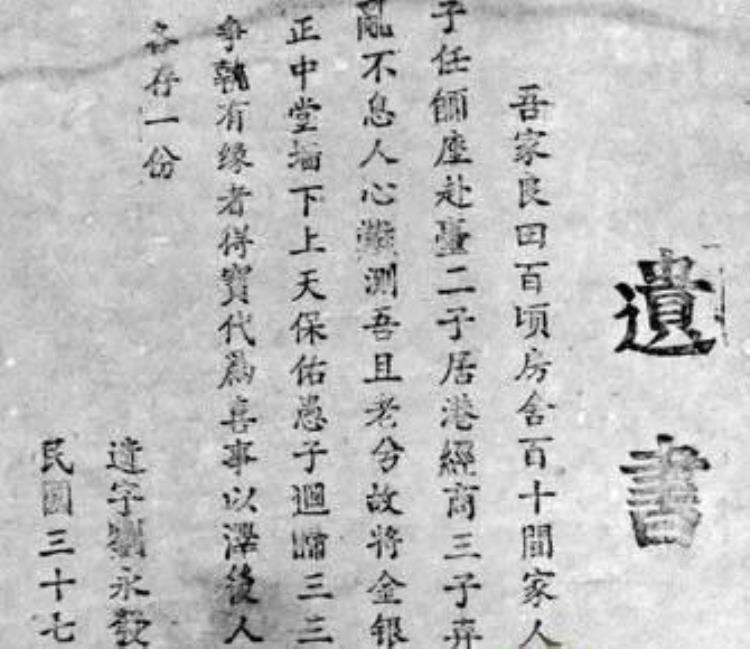 遺書
吾家良田百顷房舍百十間家人
子任師座赴臺二子居港經商三子弃
亂不息人心難測吾且老兮故將金银
正中堂墙下上天保佑愚子迴歸三三
争執有缘者得寶代為喜事以澤後人
各存一份
遺字劉永發
民國三十七